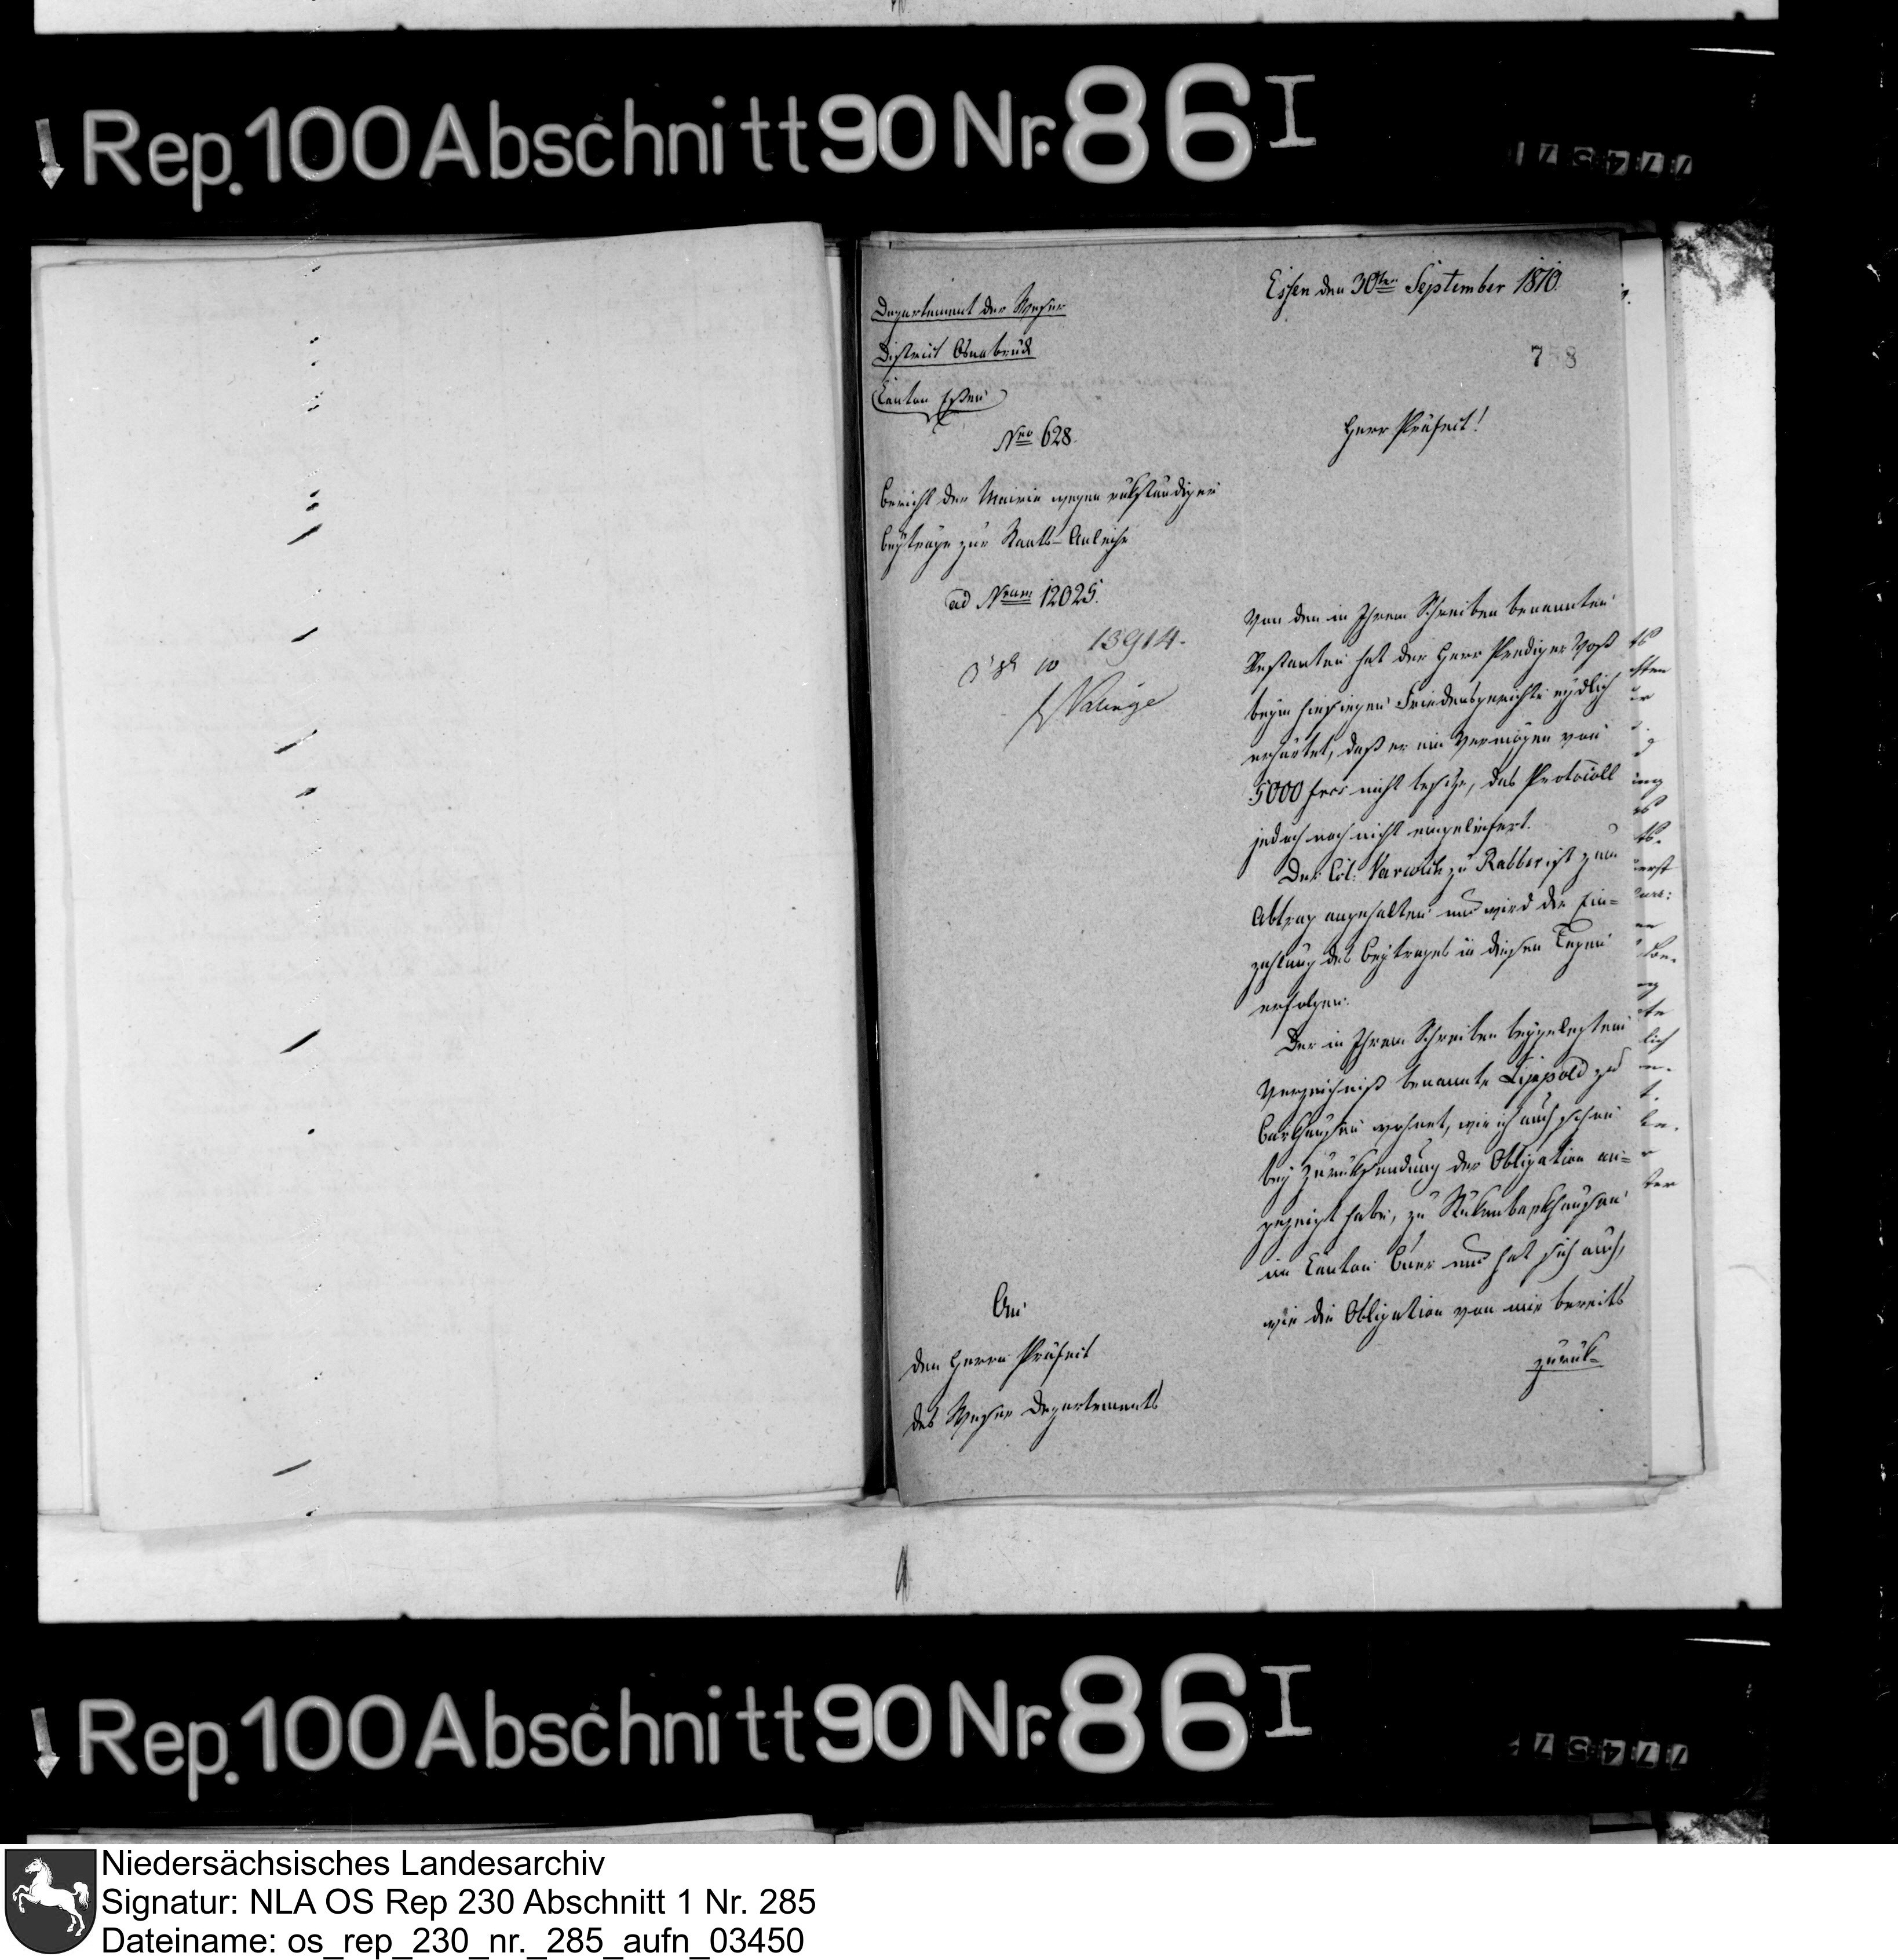 Rep. 100 Abschnitt 90 Nr. 86 I
Essen den 30ten September 1810.
Departement der Weser
District Osnabrück
Canton Essen
Nro 628.
788
Herr Präfect!
Bericht der Mairie wegen rükständiger
Beyträge zur Staats-Anleihe
ad Nrum 12025.
13914.
Von den in Ihrem Schreiben benannten
Restanten hat der Herr Prediger Voß
beym hiesigen Friedensgerichte eydlich
erhärtet, daß er ein Vermögen von
5000 frcs nicht besitze, das Protocoll
jedoch noch nicht eingeliefert.
Der Col: Varwick zu Rabber ist zum
Abtrag angehalten und wird die Ein=
zahlung des Beytrages in diesen Tagen
erfolgen.
Der in Ihrem Schreiben beygelegtem
Verzeichniß benannte Lippold zu
Barkhausen wohnet, wie ich auch schon
bey Zurüksendung der Obligation an=
gezeigt habe, zu
im Canton Buer und hat sich auch,
wie die Obligation von mir bereits
zurük=
An
den Herrn Präfect
des Weser Departements
Rep. 100 Abschnitt 90 Nr. 86 I
Niedersächsisches Landesarchiv
Signatur: NLA OS Rep 230 Abschnitt 1 Nr. 285
Dateiname: os_rep_230_nr._285_aufn_03450